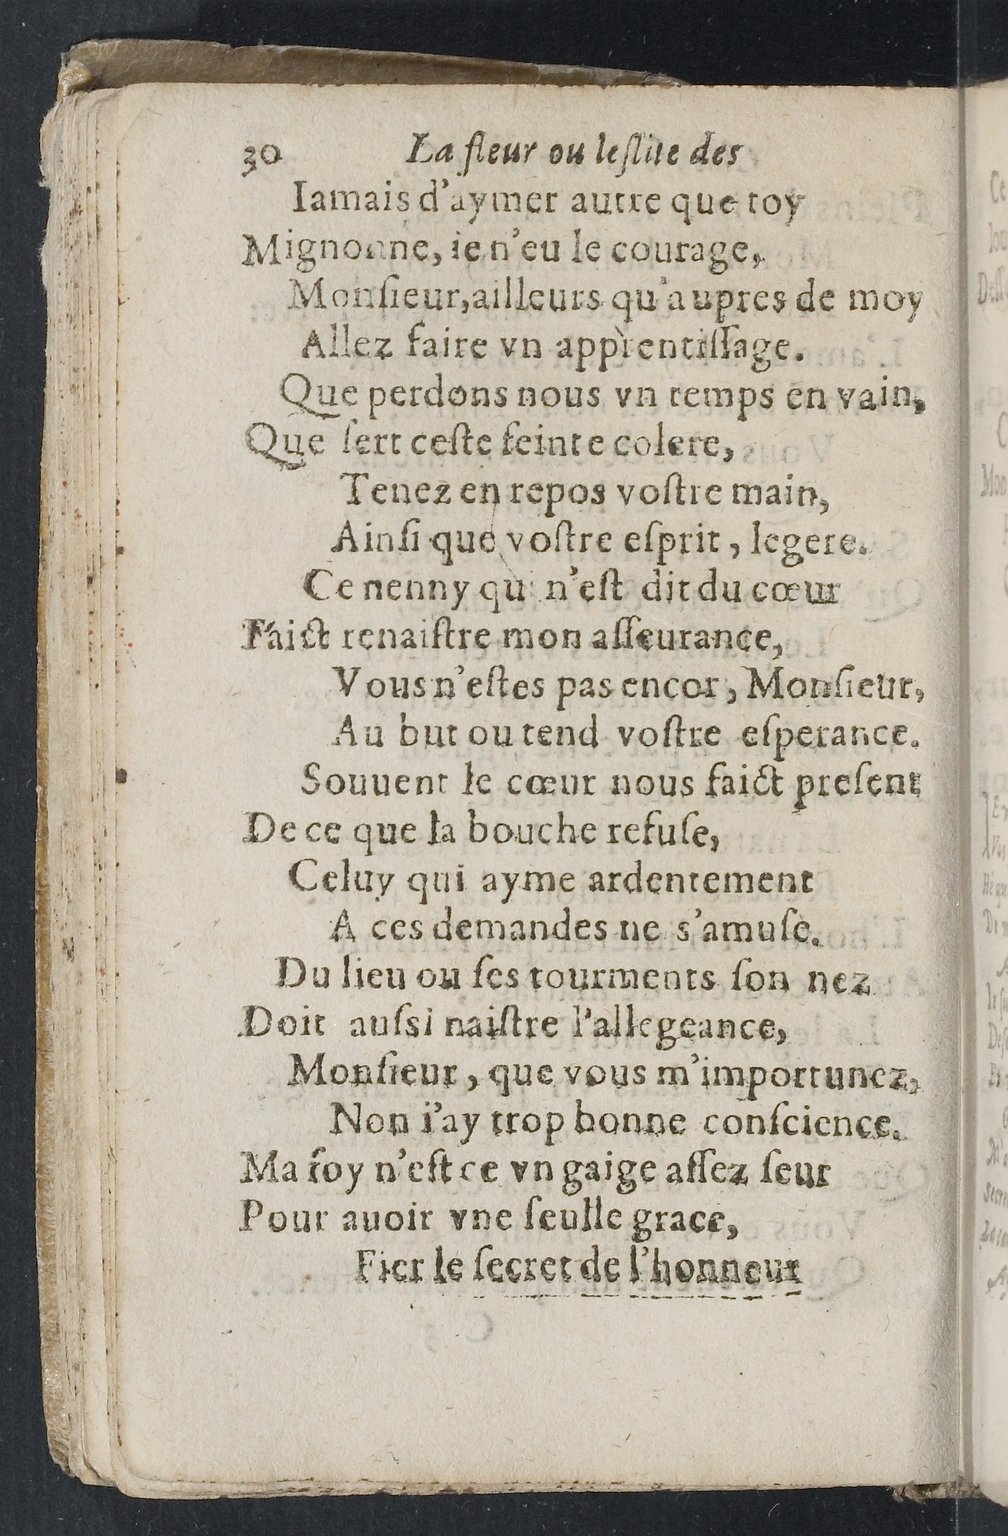 30 La fleur ou leſlite des
Iamais d'aymer autre que toy
Mignonne, ie n'eu le courage,
Monſieur, ailleurs qu'aupres de moy
Allez faire vn apprentiſſage.
Que perdons nous vn temps en vain,
Que ſert ceſte feinte colere,
Tenez en repos voſtre main,
Ainſi que voſtre eſprit, legere.
Ce nenny qui n'eſt dit du cœur
Faict renaiſtre mon aſſeurance,
Vous n'eſtes pas encor, Monſieur,
Au but ou tend voſtre eſperance.
Souuent le cœur nous faict preſent
De ce que la bouche refuſe,
Celuy qui ayme ardentement
A ces demandes ne s'amuſe.
Du lieu ou ſes tourments ſon nez
Doit auſsi naiſtre l'allegeance,
Monſieur, que vous m'importunez,
Non i'ay trop bonne conſcience.
Ma foy n'eſt ce vn gaige aſſez ſeur
Pour auoir vne ſeulle grace,
Fier le ſecret de l'honneur